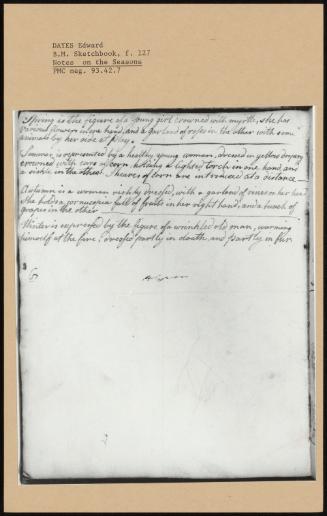 DAYES Edward
B.M. Sketchbook, f. 127
Notes on the Seasons
PMC neg. 93.42.7
Spring is the figure of a young girl crowned with myrtle, she has
various flowers in one hand, and a garland of roses in the other with some
animals by her side at play.
Summer is represented by a healthy young woman, dressed in yellow drapery
crowned with ears of corn, holding a lighted torch in one hand, and
a sickle in the other. Sheaves of corn are introduced at a distance
Autumn is a woman richly dressed, with a garland of vines on her head
She holds a cornucopia full of fruits in her right hand, and a bunch of
grapes in the other
Winter is expressed by the figure of a wrinkled old man, warming
himself at the fire, dressed partly in cloath, and partly in fur